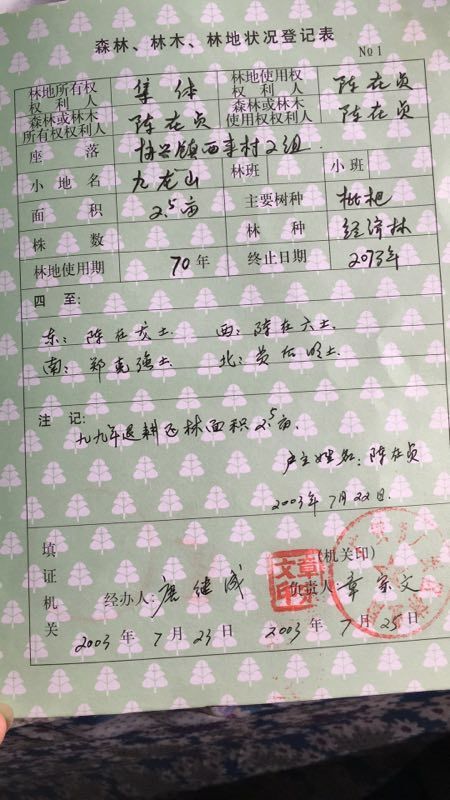 森林、林木、林地状况登记表
№1
林地所有权权利人 集体 林地使用权权利人 陈在贞
森林或林木所有权权利人 陈在贞 森林或林木使用权权利人 陈在贞
座落 协兴镇西来村2组
小地名 九龙山 林班 小班
面积 2.5亩 主要树种 枇杷
株数 林种 经济林
林地使用期 70年 终止日期 2073年
四至:
东：陈在发土 西：陈在六土
南：郑克强土 北：黄后明土
注记:
九九年退耕还林面积2.5亩.
户主姓名：陈在贞
2003年7月22日
填证机关
(机关印)
经办人: 唐继成 负责人: 章家文
2003年7月23日 2003年7月25日